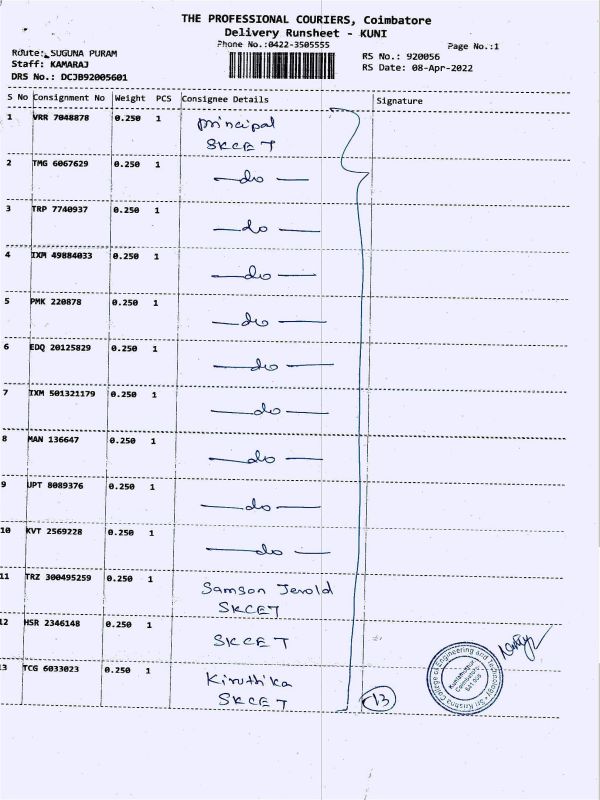 THE PROFESSIONAL COURIERS, Coimbatore
Delivery Runsheet - KUNI
Phone No.:0422-3505555
Page No.:1
Route: SUGUNA PURAM
RS No.: 920056
Staff: KAMARAJ
RS Date: 08-Apr-2022
DRS No.: DCJB92005601
S No Consignment No Weight PCS Consignee Details Signature
1 VRR 7048878 0.250 1 Principal
SKCET
2 TMG 6067629 0.250 1 —do—
3 TRP 7740937 0.250 1 —do—
4 IXM 49884033 0.250 1 —do—
5 PMK 220878 0.250 1 —do—
6 EDQ 20125829 0.250 1 —do—
7 IXM 501321179 0.250 1 —do—
8 MAN 136647 0.250 1 —do—
9 UPT 8089376 0.250 1 —do—
10 KVT 2569228 0.250 1 —do—
11 TRZ 300495259 0.250 1 Samson Jerold
SKCET
12 HSR 2346148 0.250 1 SKCET
13 TCG 6033023 0.250 1 Kiruthika
SKCET
13
Sri Krishna College of Engineering and Technology
Kuniamuthur
Coimbatore
641 008